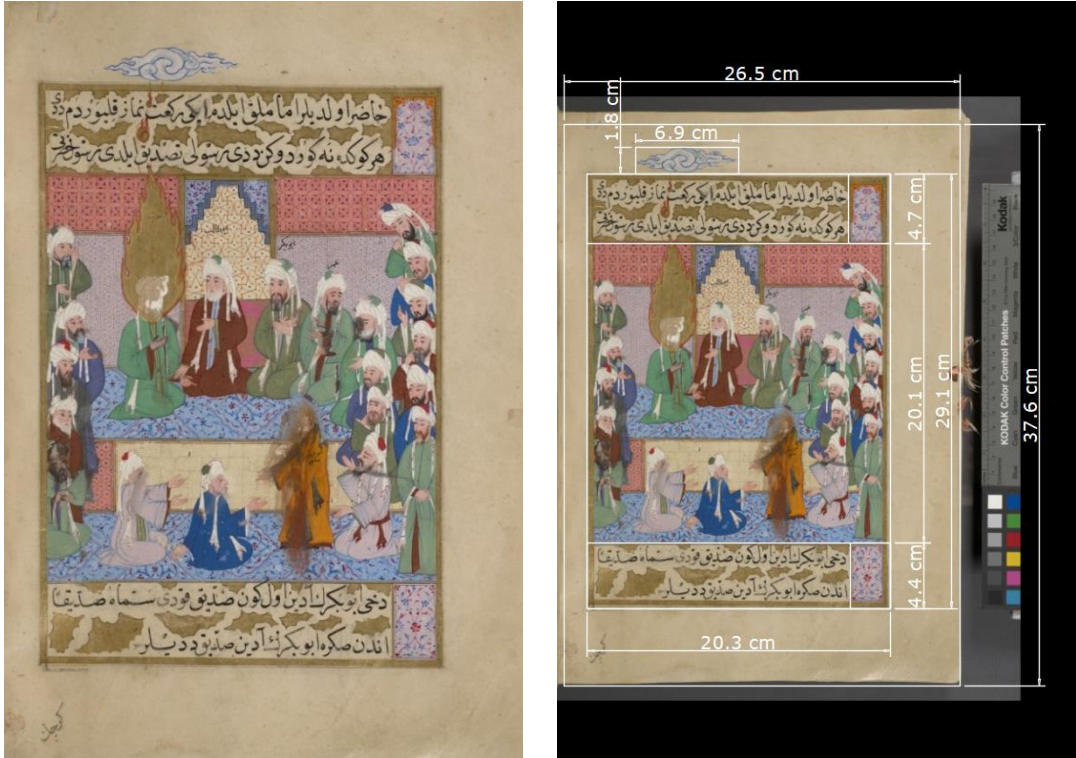 حاضر اولدیلر اماملق ایلدم ایکی رکعت نماز قلیوردم
هر کوکده نه کوردوکن دیدی رسولی تصدیق ایلدی رسول
ابوبکر
دخی ابو بکرك آدین اول کون صدّیق قودی سماه صدیقا
اندن صکره ابو بکرك آدین صدیق دیدیلر
کرچك
26.5 cm
1.8 cm
6.9 cm
4.7 cm
20.1 cm
29.1 cm
37.6 cm
4.4 cm
20.3 cm
Kodak
KODAK Color Control Patches